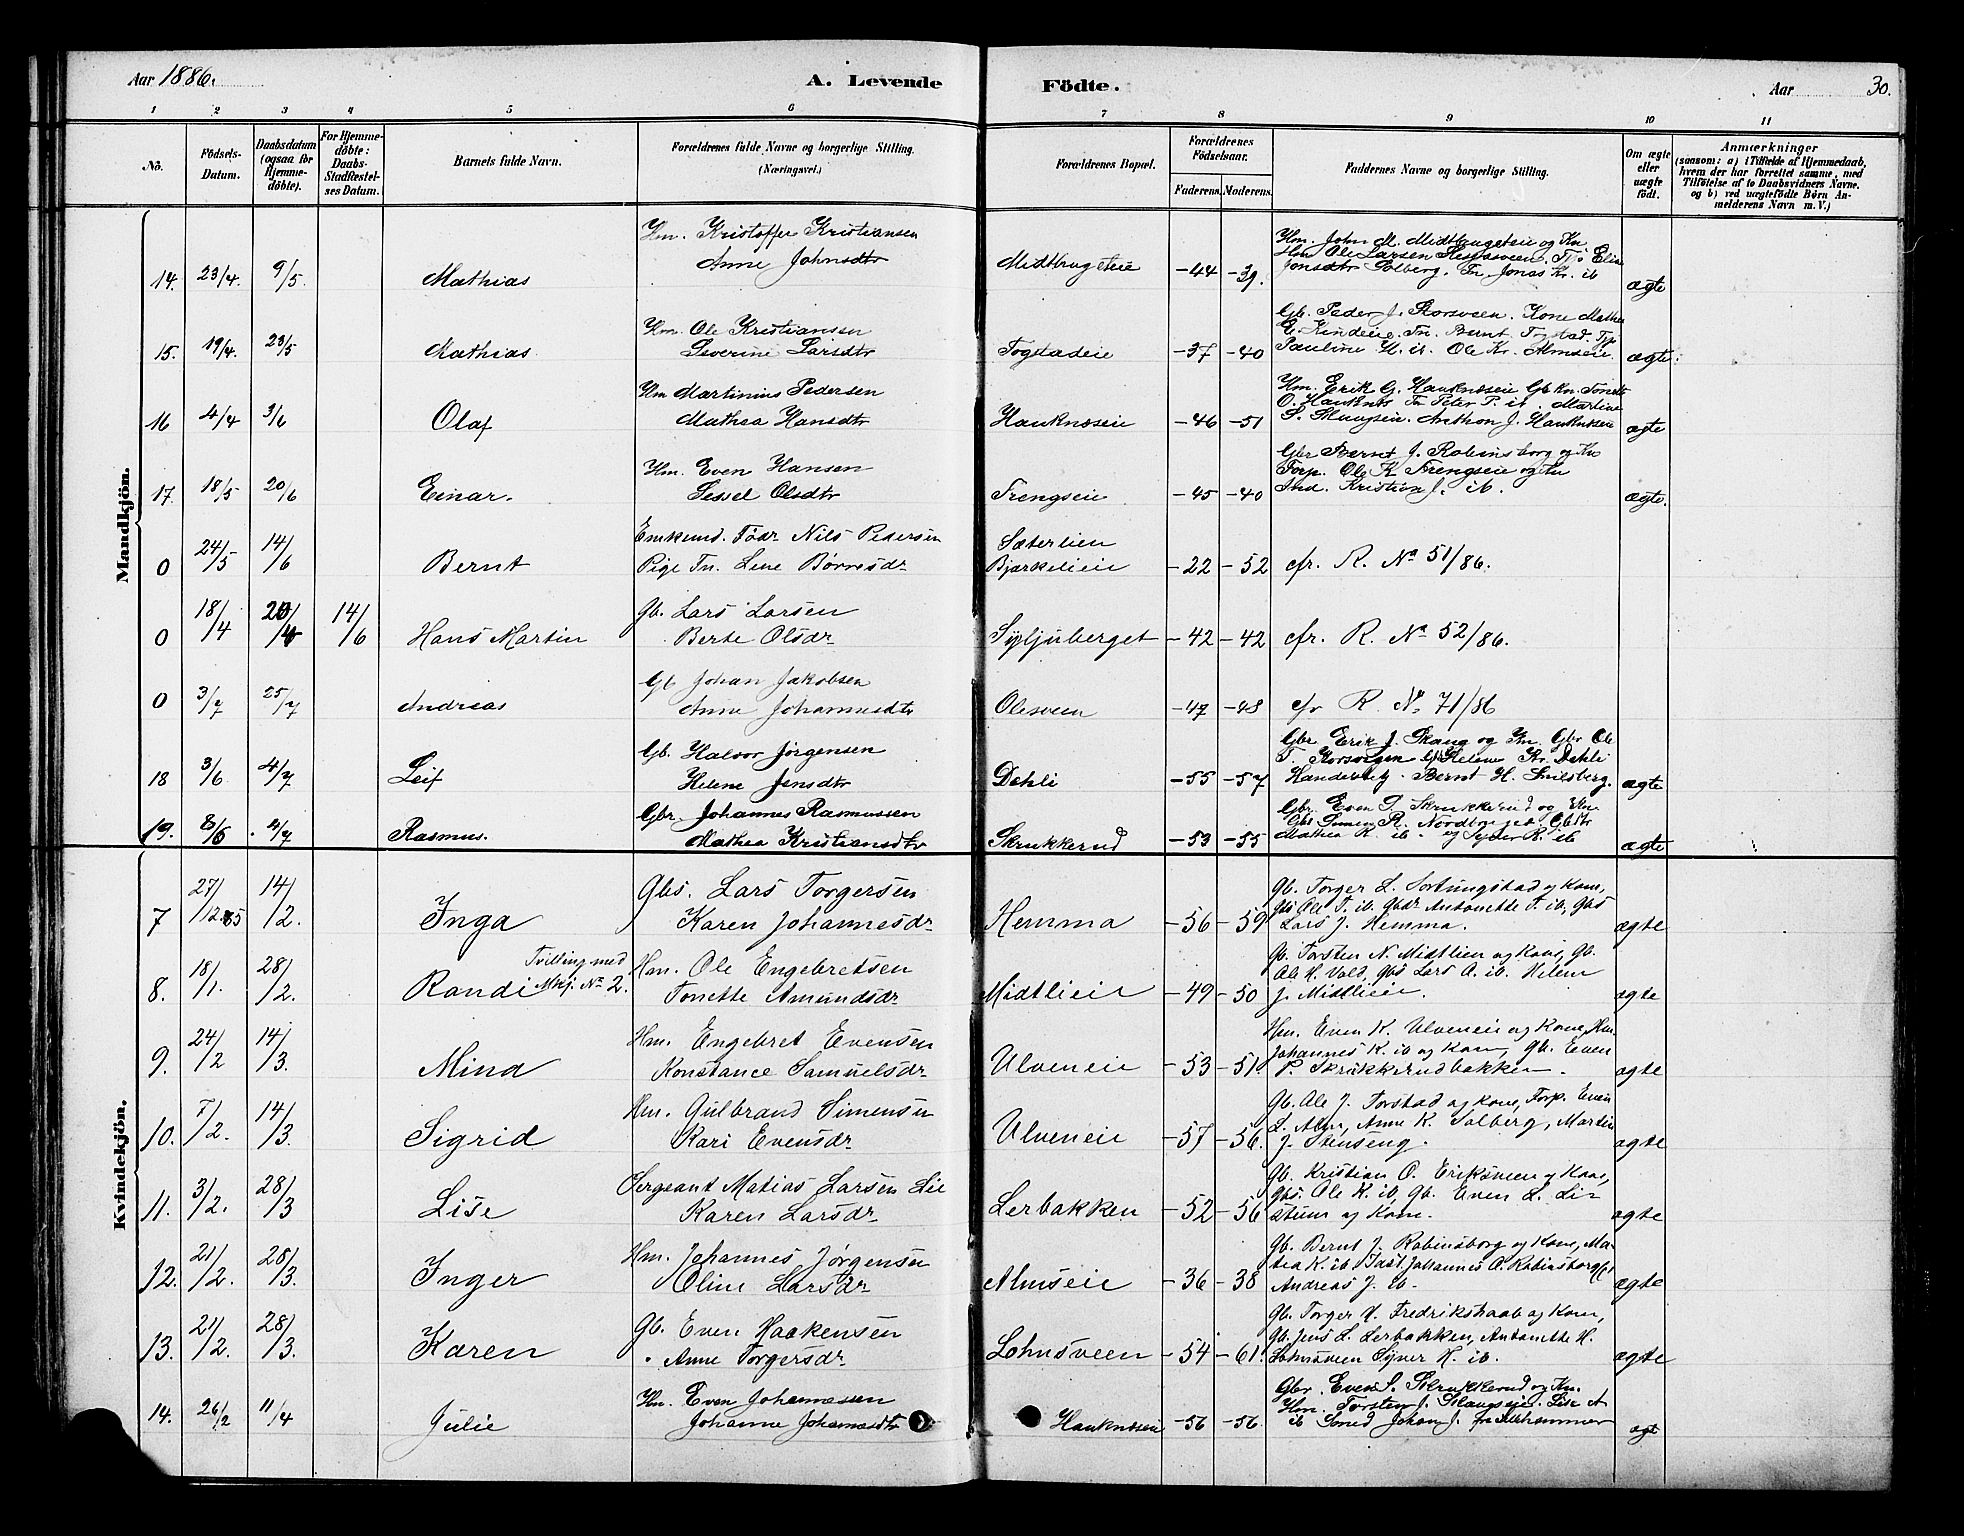 Aar 1886. A. Levende Födte. Aar 30.
1 2 3 4 5 6 7 8 9 10 11
No. Födsels-Datum. Daabsdatum (ogsaa for Hjemmedöbte). For Hjemmedöbte: Daabs-Stadfæstelses Datum. Barnets fulde Navn. Forældrenes fulde Navne og borgerlige Stilling. (Næringsvei.) Forældrenes Bopæl. Forældrenes Födselsaar. Faderens. Moderens. Faddernes Navne og borgerlige Stilling. Om ægte eller uægte födt. Anmærkninger (saasom: a) i Tilfælde af Hjemmedaab, hvem der har forrettet samme, med Tilföielse af to Daabsvidners Navne, og b) ved uægtefödte Börn Anmelderens Navn m. V.)
Mandkjön.
Hm. Kristoffer Kristiansen Hm. John M. Midtbrugeteie og Kn
14. 23/4. 9/5. Mathias Anne Johnsdtr Midtbrugeteie -44 -39. Jonsdtr Solberg. Fn Jonas Kr. ib ægte
Hm. Ole Kristiansen Gb. Peder J. Korsveen. Kone Mathea
15. 19/4. 23/5 Mathias. Severine Larsdtr Togstadeie -37 -40 Pauline H. ib. Ole Kr. Almseie. ægte
Hm Martinius Pedersen Hm. Erik G. Hauknæseie Gb kn. Tonette
16 4/4 3/6 Olaf Mathea Hansdtr Hauknæseie -46 -51 ægte
Hm. Even Hansen Gbr Bernt J. Robinsborg og Kn
Torp. Ole K Trengseie og Kn
17. 18/5 20/6 Einar. Sessel Olsdtr Trengseie -45 -40 Ind. Kristian J. ib. ægte.
Enkemd. Födr Nils Pedersen Sæterlien
0 24/5 14/6 Bernt Pige Fn. Lene Børresdr Bjørkelieie -22 -52 cfr. R. No 51/86.
Gb. Lars Larsen
0 18/4 14/6 Hans Martin Berte Olsdr Syljuberget -42 -42 cfr. R. No 52/86.
Gb Johan Jakobsen
0 3/7 25/7 Andreas Anne Johannesdtr Olesveen -47 -48 cfr R. No 71/86
Gb. Halvor Jørgensen Gbr Erik J. Skaug og Kn. Gbr Ole
18 3/6 4/7 Leif Helene Jensdtr Dahli -55 -57 Bernt H. Smedsberg. ægte
Gbr. Johannes Rasmussen Gbr. Even P. Skrukkerud og Kn.
19. 8/6 4/7 Rasmus. Mathea Kristiansdtr Skrukkerud -53 -55 Mathea K. ib. og Syver R. ib ægte
Kvindekjön.
Gbs. Lars Torgersen Gb. Torger L. Sortungstad og Kone,
Gbs Ole T. ib, Gbdr Antonette T. ib, Gbs
7 27/12.85 14/2. Inga Karen Johannesdr Hemma -56 -59 Lars J. Hemma. ægte
Tvilling med Hm. Ole Engebretsen Gb. Torsten N. Midtlien og Kone, Gb.
Ole H. Vold, Gbs Lars A. ib. Helene
8. 18/1. 28/2. Randi Mkj. No 2. Tonette Amundsdr Midtlieie -49 -50 J. Midtlieie. ægte
Hm. Engebret Evensen Hm. Even K. Ulveneie og Kone, Hm.
Johannes K. ib og Kone, Gb. Even
9. 24/2 14/3. Mina Konstance Samuelsdr Ulveneie -53 -51. P. Skrukkerudbakken. ægte
Hm. Gulbrand Simensen Gb. Ole J. Torstad og Kone, Torp. Even
L. Alm, Anne K. Solberg, Martin
10. 7/2. 14/3. Sigrid Kari Evensdr Ulveneie -57 -56. J. Stenseng. ægte
Sergeant Matias Larsen Lie Gb. Kristian O. Eriksveen og Kone,
Gbs. Ole K. ib, Gb. Even L. Li-
11. 3/2. 28/3 Lise Karen Larsdr Lerbakken -52 -56 stuen og Kone. ægte
Hm. Johannes Jørgensen Gb. Bernt J. Robinsborg og Kone, Ma-
tea K. ib, Johannes O. Robinsborg,
12. 21/2. 28/3. Inger Oline Larsdr Almseie -36 -38 Andreas J. ib. ægte
Gb. Even Haakensen Gb. Torger H. Fredrikshaab og Kone,
Gb. Jens L. Lerbakken, Antonette H.
13. 21/2. 28/3. Karen Anne Torgersdr Lohnsveen -54 -61. Lohnsveen Syver H. ib. ægte
Hm. Even Johannessen Gbr. Even P. Skrukkerud og Kn.
Hm. Torsten J. Skaugseie. Lise A
14. 26/2 11/4 Julie Johanne Johannesdtr Hauknæseie -56 -56. ib Smed Johan J. fra Lillehammer ægt